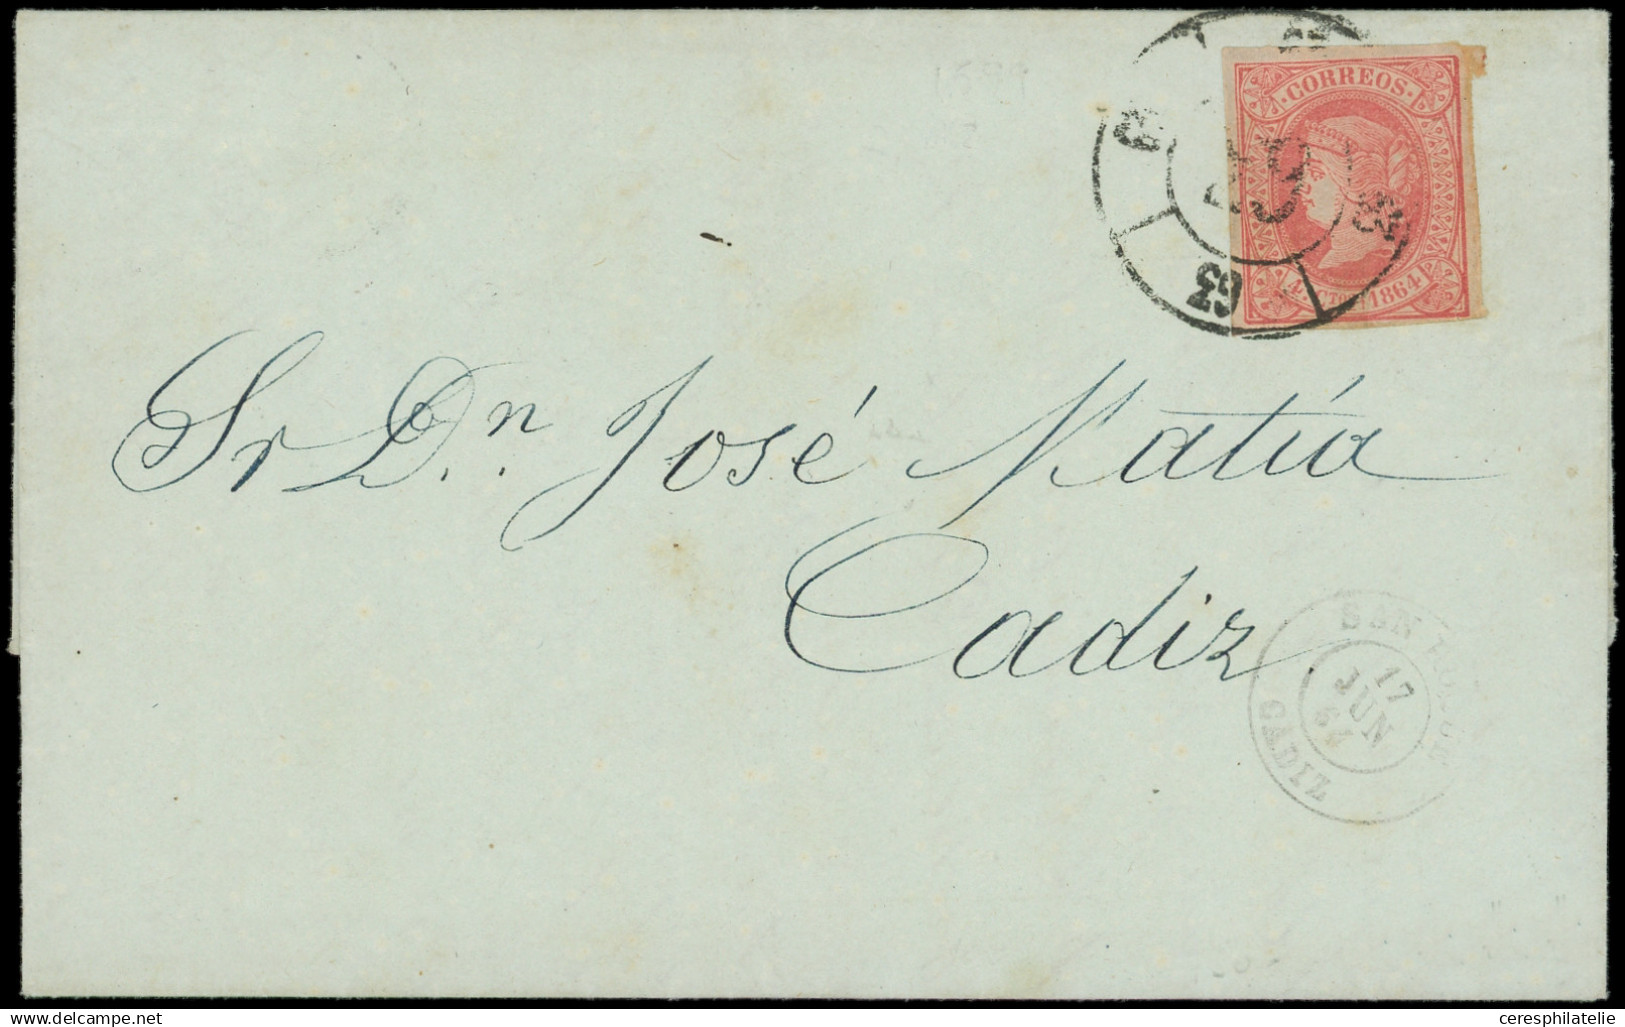 CORREOS
4 CTOS 1864
63
Sr Dn. José Matía
Cadiz
SAN ROQUE
17
JUN
64
CADIZ
www.delcampe.net
ceresphilatelie